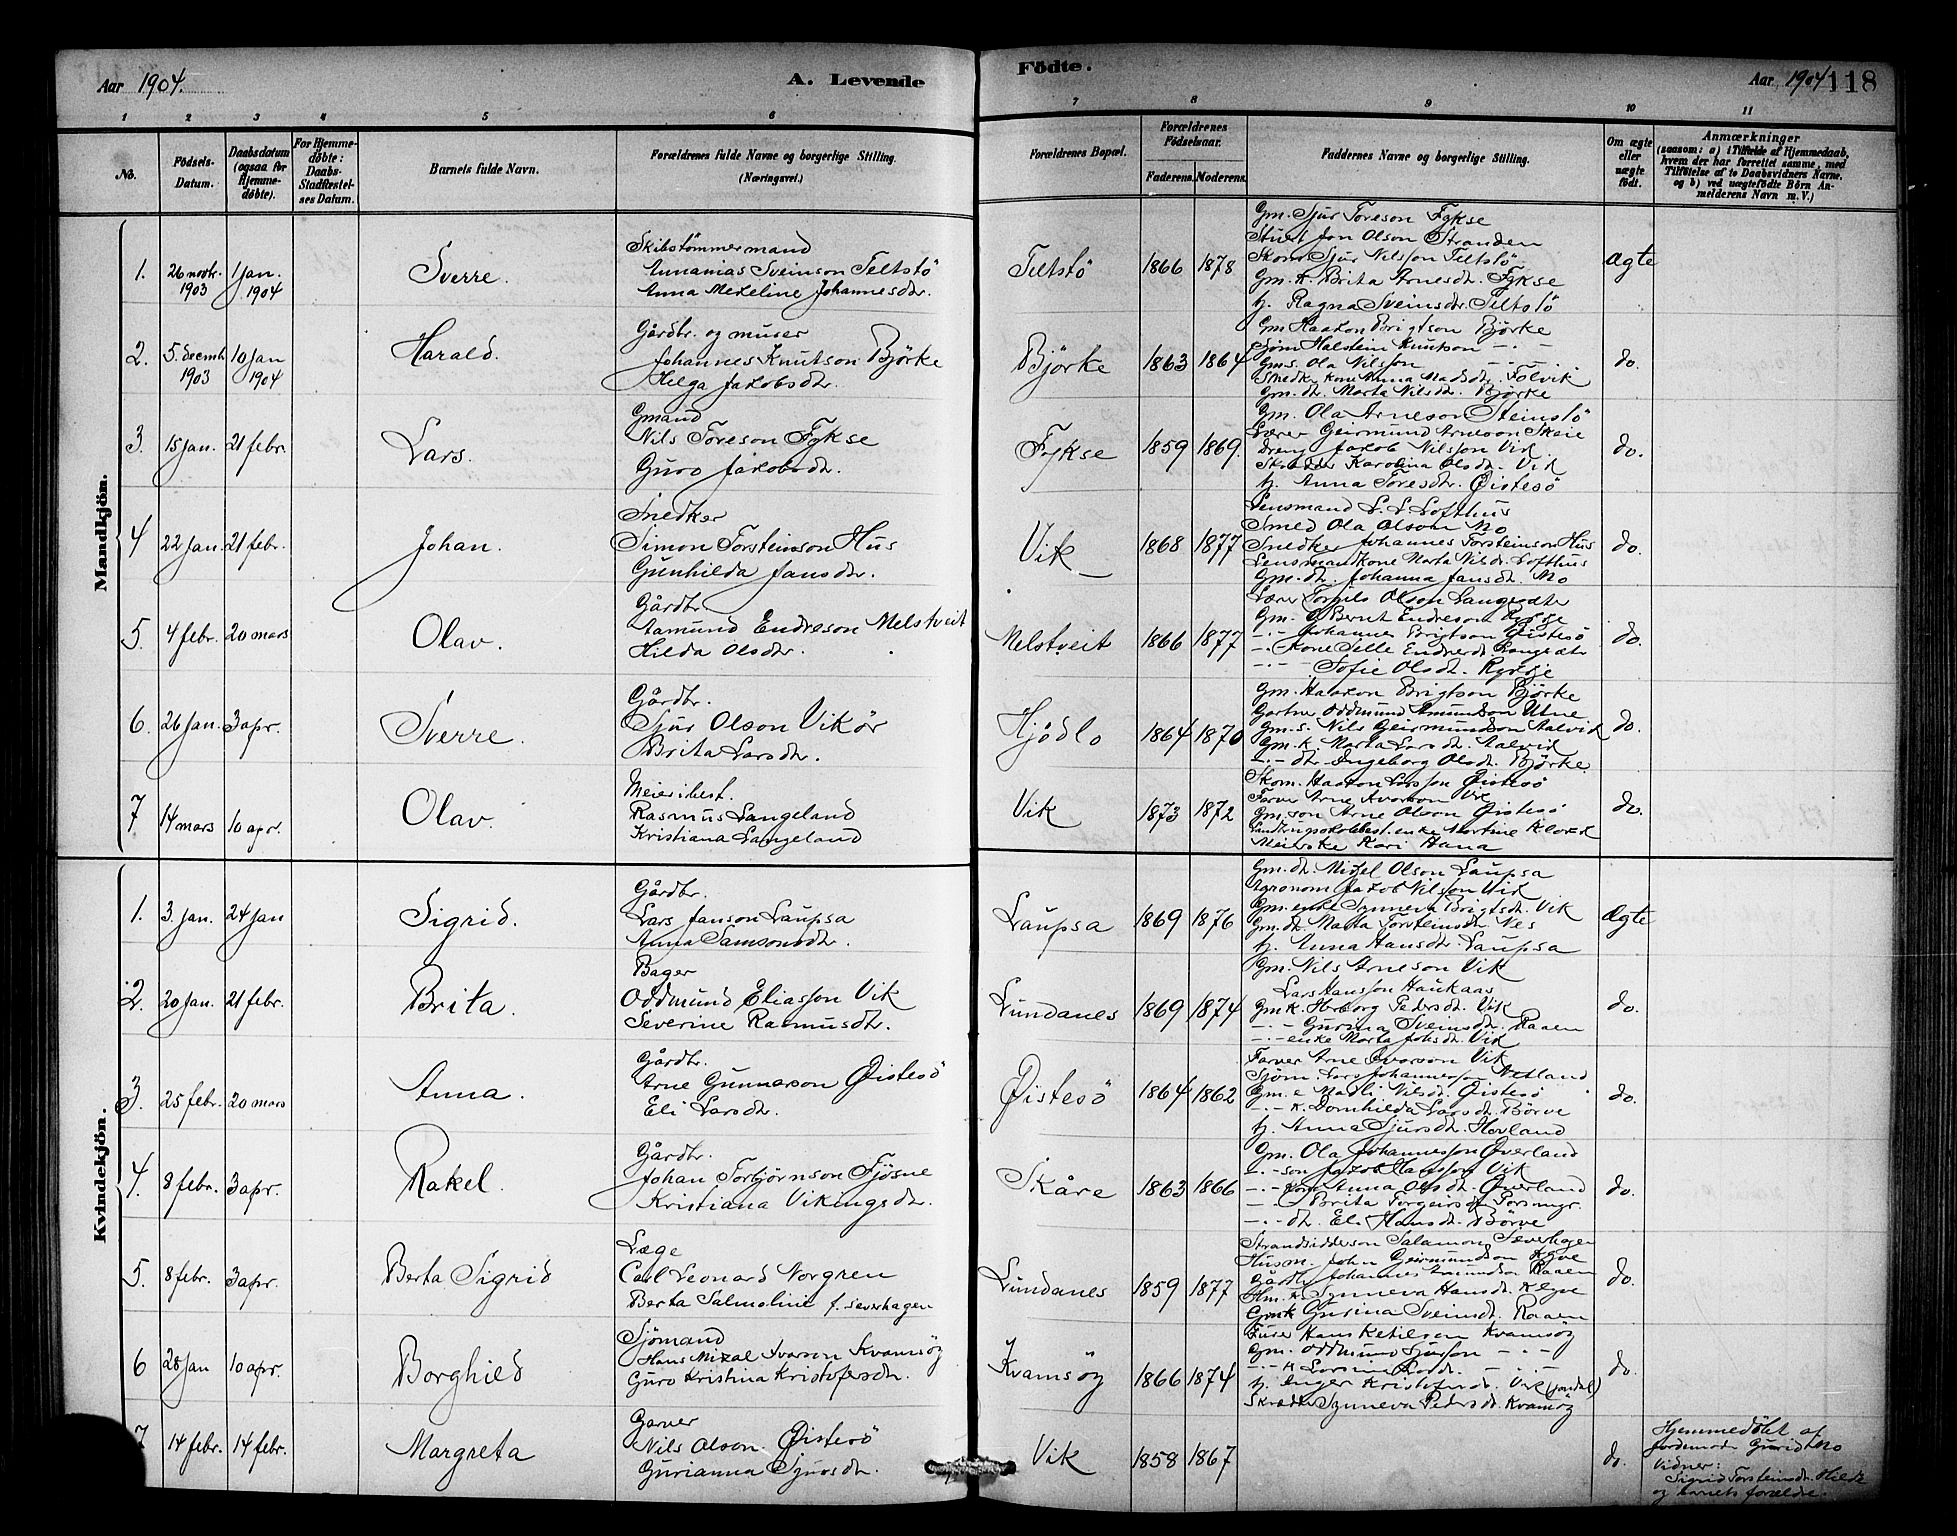 Aar 1904.
A. Levende
Födte.
Aar 1904
118
1 2 3 4 5 6 7 8 9 10 11
No.
Födsels-Datum.
Daabsdatum (ogsaa for Hjemmedøbte).
For Hjemmedøbte: Daabs-Stadfæstelses Datum.
Barnets fulde Navn.
Forældrenes fulde Navne og borgerlige Stilling. (Næringsvei.)
Forældrenes Bopæl.
Forældrenes Födselsaar.
Faderens. Moderens.
Faddernes Navne og borgerlige Stilling.
Om ægte eller uægte födt.
Anmærkninger (saasom: a) i Tilfælde af Hjemmedaab, hvem der har forrettet samme, med Tilföielse af to Daabsvidners Navne, og b) ved uægtefödte Börn Anmelderens Navn m. V.)
Mandkjön.
1. 26 novbr. 1903 1 jan. 1904 Sverre.
Skibstömmermand
Annanias Sveinson Teltslö
Anna Meteline Johannesdtr.
Teltslö 1866 1878
Gm. Sjur Toreson Fykse
Stuert Jon Olson Stranden
Skom. Sjur Nilsson Teltslö
Gm. k. Brita Arnesdtr. Fykse
tj. Ragna Sveinsdtr. Teltslö
Ægte
2. 5. decemb. 1903 10 jan 1904 Harald.
Gårdbr. og murer
Johannes Knutson Björke
Helga Jakobsdtr.
Björke 1863 1864
Gm Haakon Brigtson Björke
Sjöm Halstein Knutson -"-
Gm.s. Ola Nilsson -"-
Snedker kone Anna Madsdtr. Tolvik
Gm. dtr. Marta Nilsdtr. Björke
do.
3. 15 jan. 21 febr. Lars.
Gmand
Nils Toreson Fykse
Guro Jakobsdtr.
Fykse 1859 1869
Gm. Ola Arneson Steinslö
Lærer Geirmund Arneson Skeie
Dreng Jakob Nilsson Vik
Karolina Olsdtr. Vik
tj. Anna Toresdtr. Öistesö
do.
4 22 jan. 21 febr. Johan.
Snedker
Simon Torsteinson Hus
Gunhilda Jansdtr.
Vik 1868 1877
Lensmand L. L. Lofthus
Smed Ola Olson Mo
Snedker Johannes Torsteinson Hus
Lensmandkone Marta Nilsdr. Lofthus
Gm. dtr. Johanna Jansdtr. Mo
do.
5. 4 febr. 20 mars Olav.
Gårdbr
Aamund Endreson Melstveit
Hilda Olsdtr.
Melstveit 1866 1877
Lærer Torgils Olson Langesæter
Gm. O Bernt Endreson
-"- Johannes Brigtson Öistesö
-"- Kone
-"- Sofie Olsdtr.
do.
6. 26 jan. 3 apr. Sverre.
Gårdbr.
Sjur Olson Vikör
Brita Larsdtr.
Hjödlo 1864 1870
Gm. Haakon Brigtson Björke
Gartner Oddmund Amundson Utne
Gm. s. Nils Geirmundson Aalvik
Gm. k. Marta Larsdtr. Aalvik
-"- dtr. Ingeborg Olsdtr. Björke.
do.
7. 14 mars 10 apr. Olav.
Meieribest.
Rasmus Langeland
Kristiana Langeland
Vik 1873 1872
Skom. Haakon Larsson Öistesö
Farver Arne Ivarson Vik
Gm. son Arne Olson Öistesö
enke Martine
Kari Hana
do.
Kvindekjön.
1. 3. jan. 24 jan Sigrid.
Gårdbr.
Lars Janson Laupsa
Anna Samsonsdtr.
Laupsa 1869 1876
Gm. Mikel Olson Laupsa
Agronom Jakob Nilsson Vik
Gm. enke Synneva Brigtsdtr. Vik
Gm. dtr. Marta Torsteinsdtr. Nes
tj. Anna Hansdtr. Laupsa
Ægte
2. 20 jan. 21 febr. Brita.
Bager
Oddmund Eliasson Vik
Severine Rasmusdtr.
Lundanes 1869 1874
Gm. Nils Arneson Vik
Lars Hansson Haukaas
Gm k. Herborg Pedersdtr. Vik
-"- Gurina Sveinsdtr. Raaen
-"- enke Marta Johsdtr. Vik
do.
3. 25 febr. 20 mars Anna.
Gårdbr.
Arne Gunnarson Öistesö
Eli Larsdtr.
Öistesö 1864 1862
Farver Arne Ivarson Vik
Sjöm. Lars Johannesson Netland
Gm. e Madli Nilsdtr. Öistesö
-"- k. Domhilda Larsdtr. Börve
tj. Anna Sjursdtr. Hovland
do.
4. 8 febr. 3 apr. Rakel.
Gårdbr.
Johan Torbjörnson Fjösne
Kristiana Vikingsdtr.
Skåre 1863 1866
Gm. Ola Johannesson Överland
-"- son Jakob Hansson Vik
-"- kone Anna Olsdtr. Överland
-"- Brita Torgeirsdtr
-"- dtr. Eli Hansdtr. Börve
do.
5. 8 febr. 3 apr. Berta Sigrid
Læge
Carl Leonard Norgren
Berta Salmoline f. Severhagen
Lundanes 1859 1877
Strandsidderson Salamon Sæverhagen
Husm. John Geirmundson
Gårdbr Johannes Amundson Raaen
Hm. k. Synneva Hansdtr.
Gmk Gurina Sveinsdtr. Raaen
do.
6 28 jan 10 apr. Borghild
Sjömand
Hans Mikal Ivarson Kvamsöy
Guro Kristina Kristofersdtr.
Kvamsöy 1866 1874
Hans Ketilson Kvamsöy
Gm. Oddmund Sjursson -"-
tj. Inger Kristofersdtr. Vik (Jondal)
Synneva Pedersdtr. Kvamsöy
do.
7 14 febr. 14 febr. Margreta
Garver
Nils Olson Öistesö
Gurianna Sjursdtr.
Vik 1858 1867
do.
Hjemmedöbt af
jordemoder Gurid Mo
Vidner:
Sigrid Torsteinsdtr.
og barnets forældre.